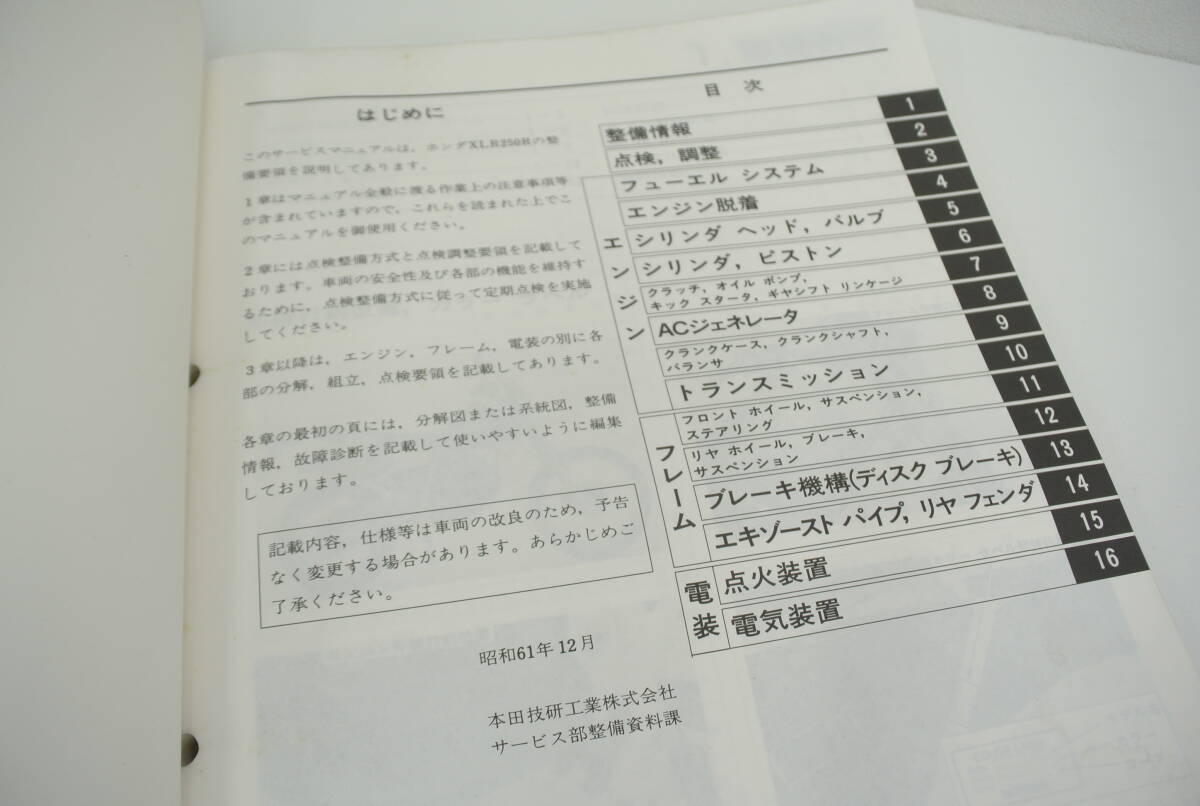 はじめに
このサービスマニュアルは，ホンダXLR250Rの整
備要領を説明してあります。
1章はマニュアル全般に渡る作業上の注意事項等
が含まれていますので，これらを読まれた上でこ
のマニュアルを御使用ください。
2章には点検整備方式と点検調整要領を記載して
おります。車両の安全性及び各部の機能を維持す
るために，点検整備方式に従って定期点検を実施
してください。
3章以降は，エンジン，フレーム，電装の別に各
部の分解，組立，点検要領を記載してあります。
各章の最初の頁には，分解図または系統図，整備
情報，故障診断を記載して使いやすいように編集
しております。
記載内容，仕様等は車両の改良のため，予告
なく変更する場合があります。あらかじめご
了承ください。
昭和61年12月
本田技研工業株式会社
サービス部整備資料課
目 次
整備情報 1
点検，調整 2
エンジン
フューエル システム 3
エンジン脱着 4
シリンダ ヘッド，バルブ 5
シリンダ，ピストン 6
クラッチ，オイル ポンプ，
キック スタータ，ギヤシフト リンケージ 7
ACジェネレータ 8
クランクケース，クランクシャフト，
バランサ 9
トランスミッション 10
フレーム
フロント ホイール，サスペンション，
ステアリング 11
リヤ ホイール，ブレーキ，
サスペンション 12
ブレーキ機構(ディスク ブレーキ) 13
エキゾースト パイプ，リヤ フェンダ 14
電装
点火装置 15
電気装置 16